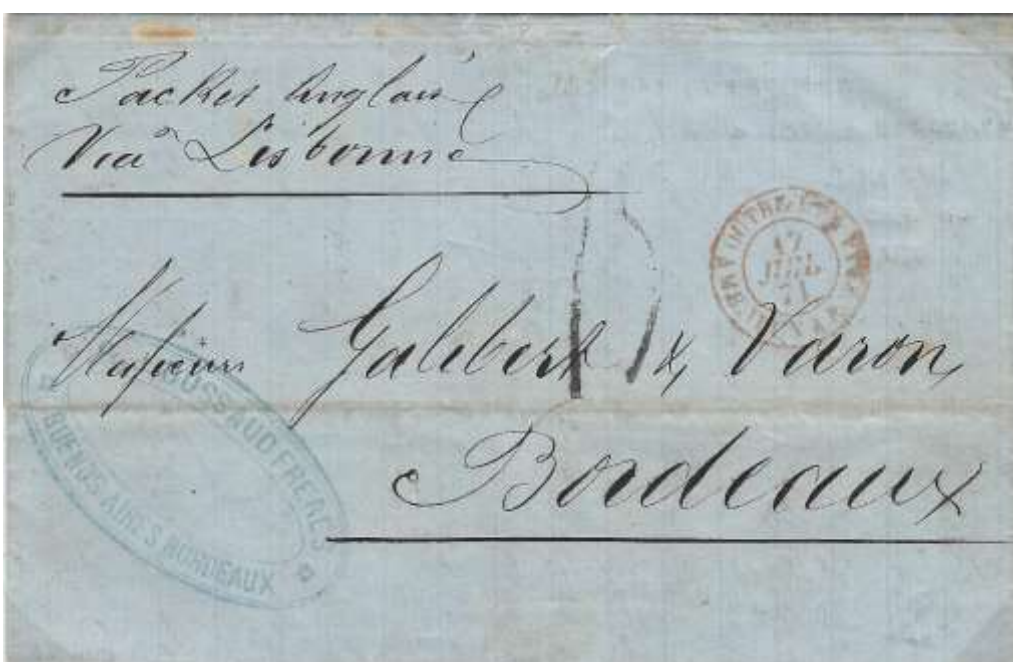 Packet Anglais
Via Lisbonne
OUTRE
17
JUIL
71
Messieurs Galibert & Varon,
Bordeaux
BUSSAUD FRERES
BUENOS AIRES BORDEAUX